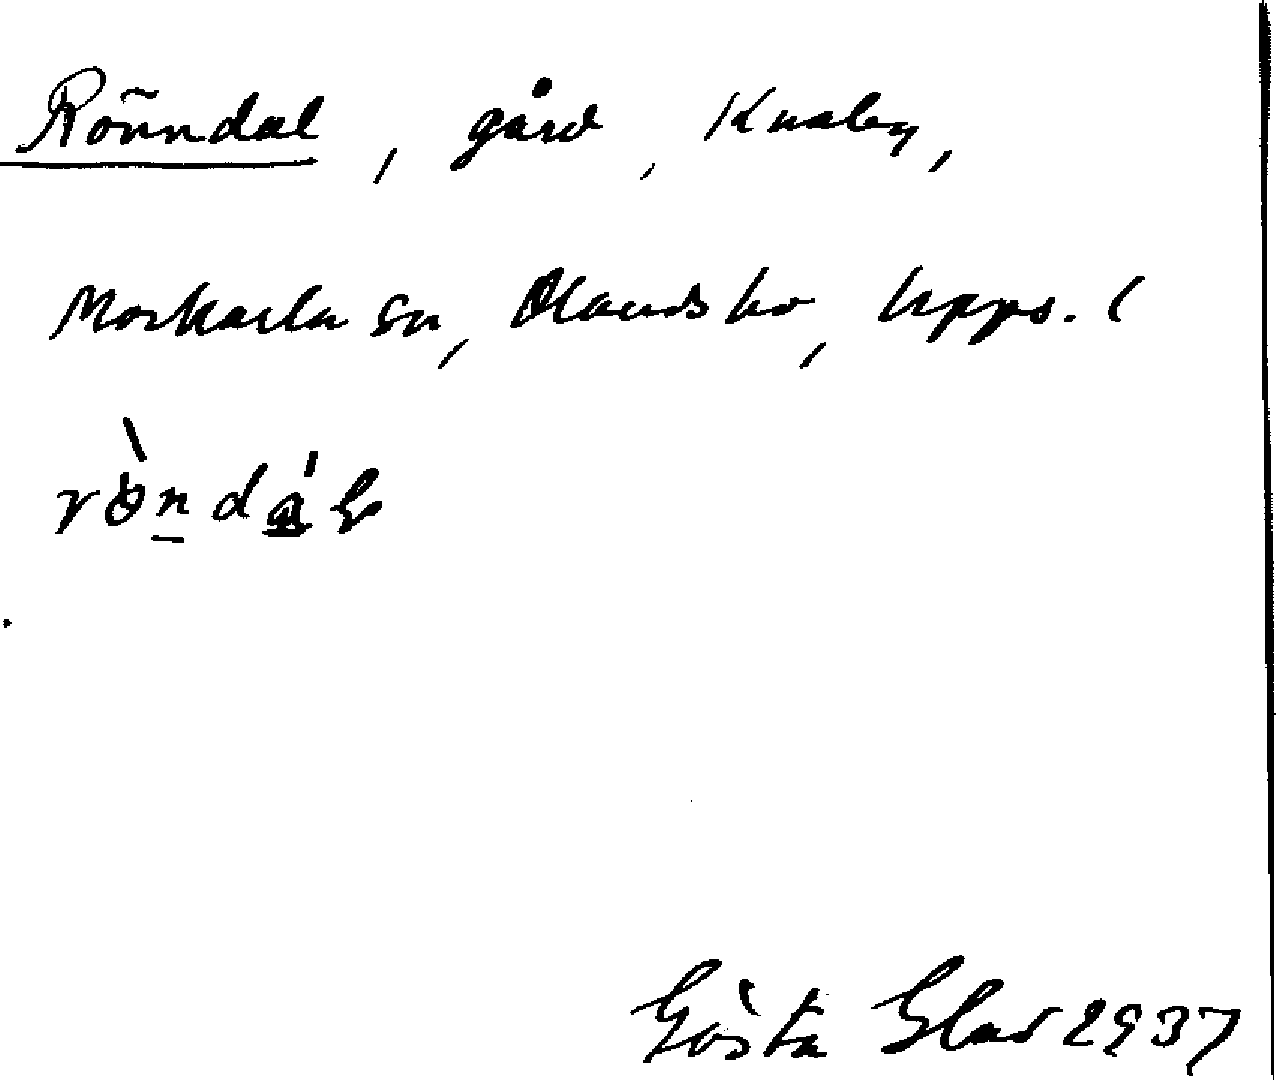 Rönndal, gård, Knaby,
Morkarla sn, Olands hd, Upps. l
Gösta Glad 1937